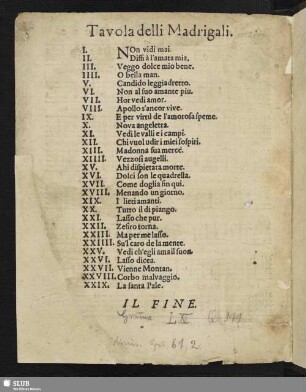 Tavola delli Madrigali.
I. NOn vidi mai.
II. Dissi à l'amata mia.
III. Veggo dolce mio bene.
IIII. O bella man.
V. Candido leggiadretto.
VI. Non al suo amante più.
VII. Hor vedi amor.
VIII. Apollo s'ancor vive.
IX. E per virtù de l'amorosa speme.
X. Nova angeletta.
XI. Vedi le valli e i campi.
XII. Chi vuol udir i miei sospiri.
XIII. Madonna sua mercè.
XIIII. Vezzosi augelli.
XV. Ahi dispietata morte.
XVI. Dolci son le quadrella.
XVII. Come doglia fin qui.
XVIII. Menando un giorno.
XIX. I lieti amanti.
XX. Tutto il dì piango.
XXI. Lasso che pur.
XXII. Zefiro torna.
XXIII. Ma per me lasso.
XXIIII. Su'l caro de la mente.
XXV. Vedi ch'egli ama il suon.
XXVI. Lasso dicea.
XXVII. Vienne Montan.
XXVIII. Corbo malvaggio.
XXIX. La santa Pale.
IL FINE.
61, 2
SLUB